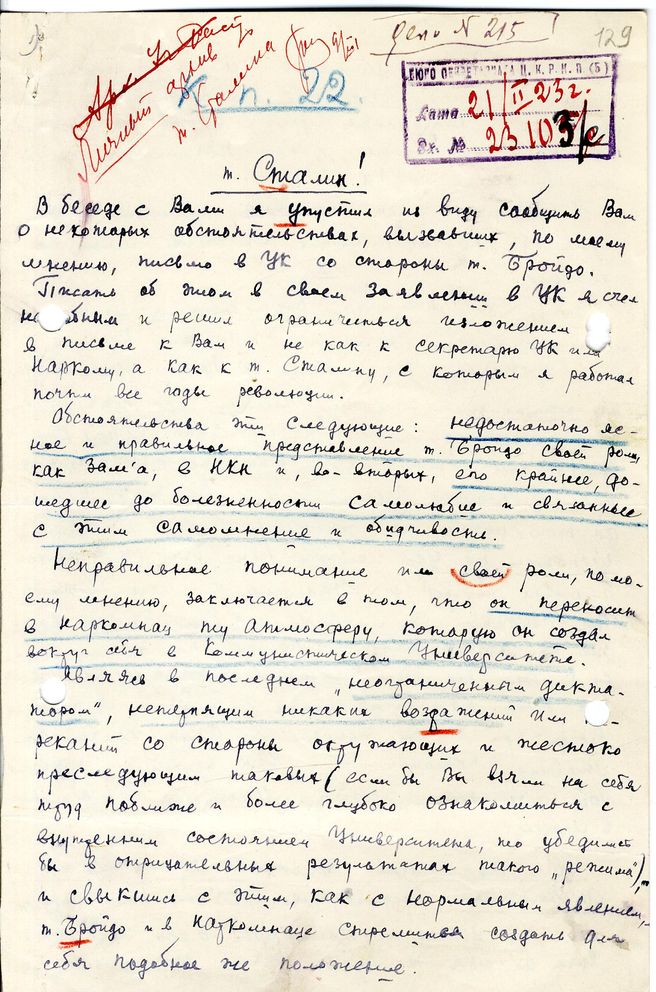 Дело N 215
129
Личный архив
т. Сталина
К п. 22.
БЮРО СЕКРЕТАРИАТА Ц.К.Р.К.П.(Б)
Дата 21/II 23г.
Вх. № 23103/с
т. Сталин!
В беседе с Вами я упустил из виду сообщить Вам
о некоторых обстоятельствах, вызвавших, по моему
мнению, письмо в ЦК со стороны т. Бройдо.
Писать об этом в своем заявлении в ЦК я счел
и решил ограничиться изложением
в письме к Вам и не как к секретарю ЦК или
Наркому, а как к т. Сталину, с которым я работал
почти все годы революции.
Обстоятельства эти следующие: недостаточно яс-
ное и правильное представление т. Бройдо своей роли,
как зам'а, в НКН и, во-вторых, его крайнее, до-
шедшее до болезненности самолюбие и связанные
с этим самомнение и обидчивость.
Неправильное понимание им своей роли, по мо-
ему мнению, заключается в том, что он переносит
в Наркомнац ту атмосферу, которую он создал
вокруг себя в Коммунистическом Университете.
Являясь в последнем „неограниченным дикта-
тором", нетерпящим никаких возражений или
реканий со стороны окружающих и жестоко
преследующим таковых (если бы Вы взяли на себя
труд поближе и более глубоко ознакомиться с
внутренним состоянием Университета, то убедились
бы в отрицательных результатах такого „режима"),
и свыкшись с этим, как с нормальным явлением,
т. Бройдо и в Наркомнаце стремится создать для
себя подобное же положение.